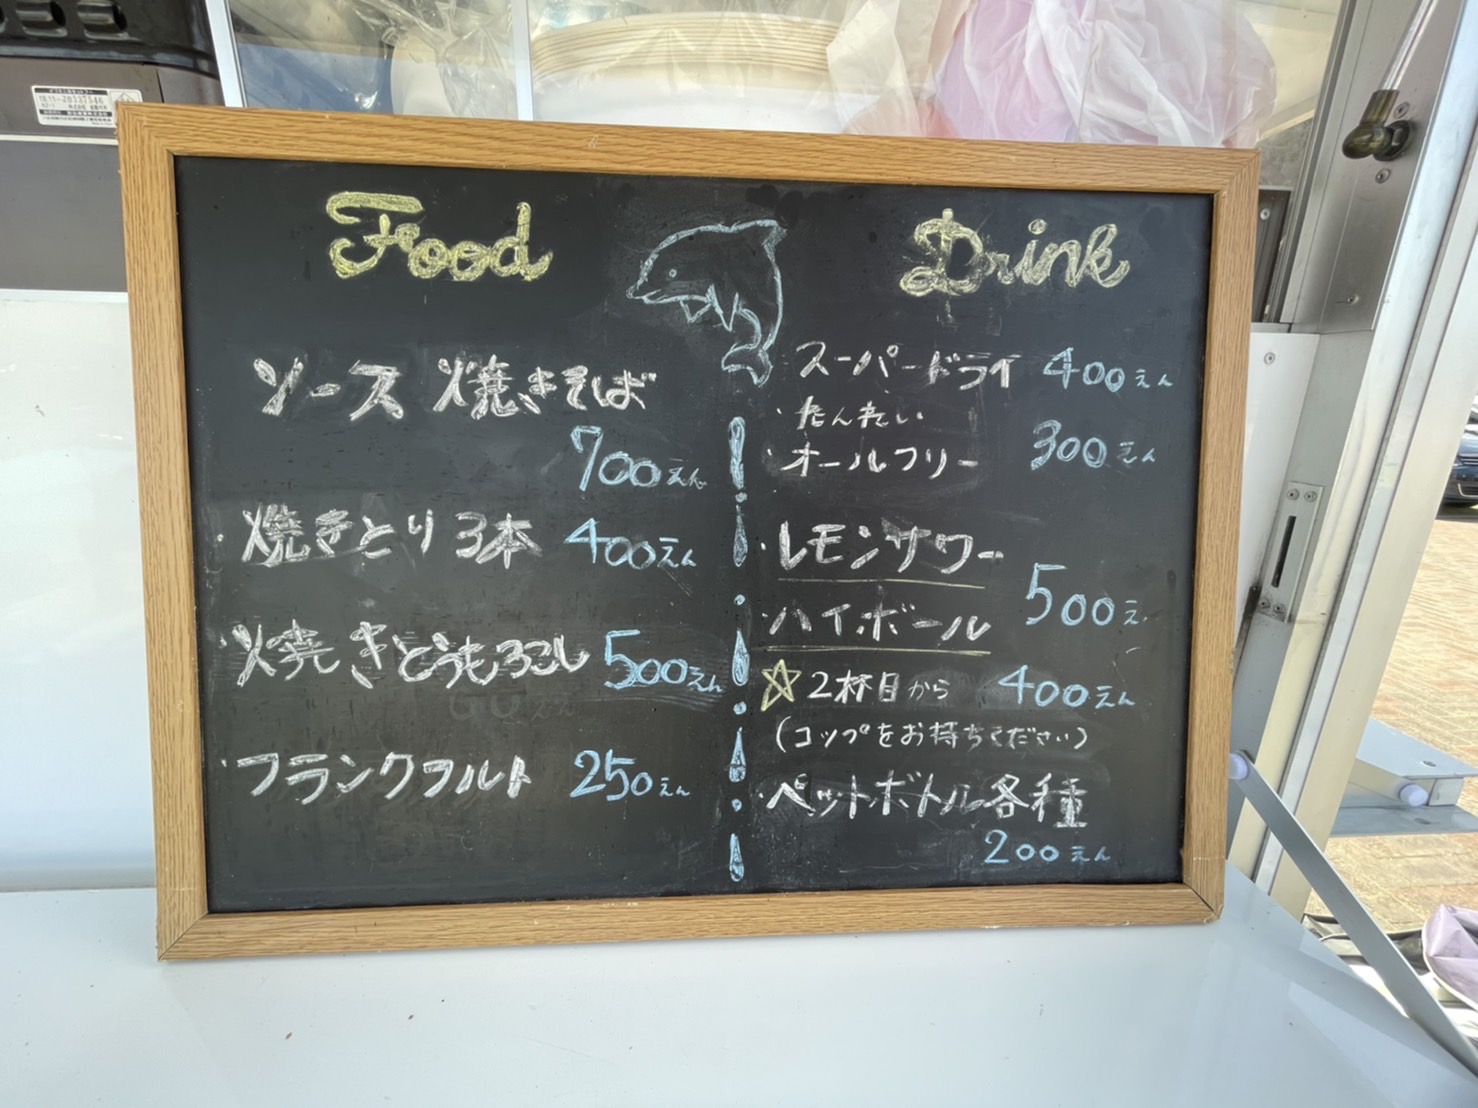 Food
ソース 焼きそば
700えん
・焼きとり3本 400えん
・焼きとうもろこし 500えん
・フランクフルト 250えん
Drink
スーパードライ 400えん
・たんれい
・オールフリー 300えん
・レモンサワー
・ハイボール 500え
☆2杯目から 400えん
(コップをお持ちください)
・ペットボトル各種
200えん